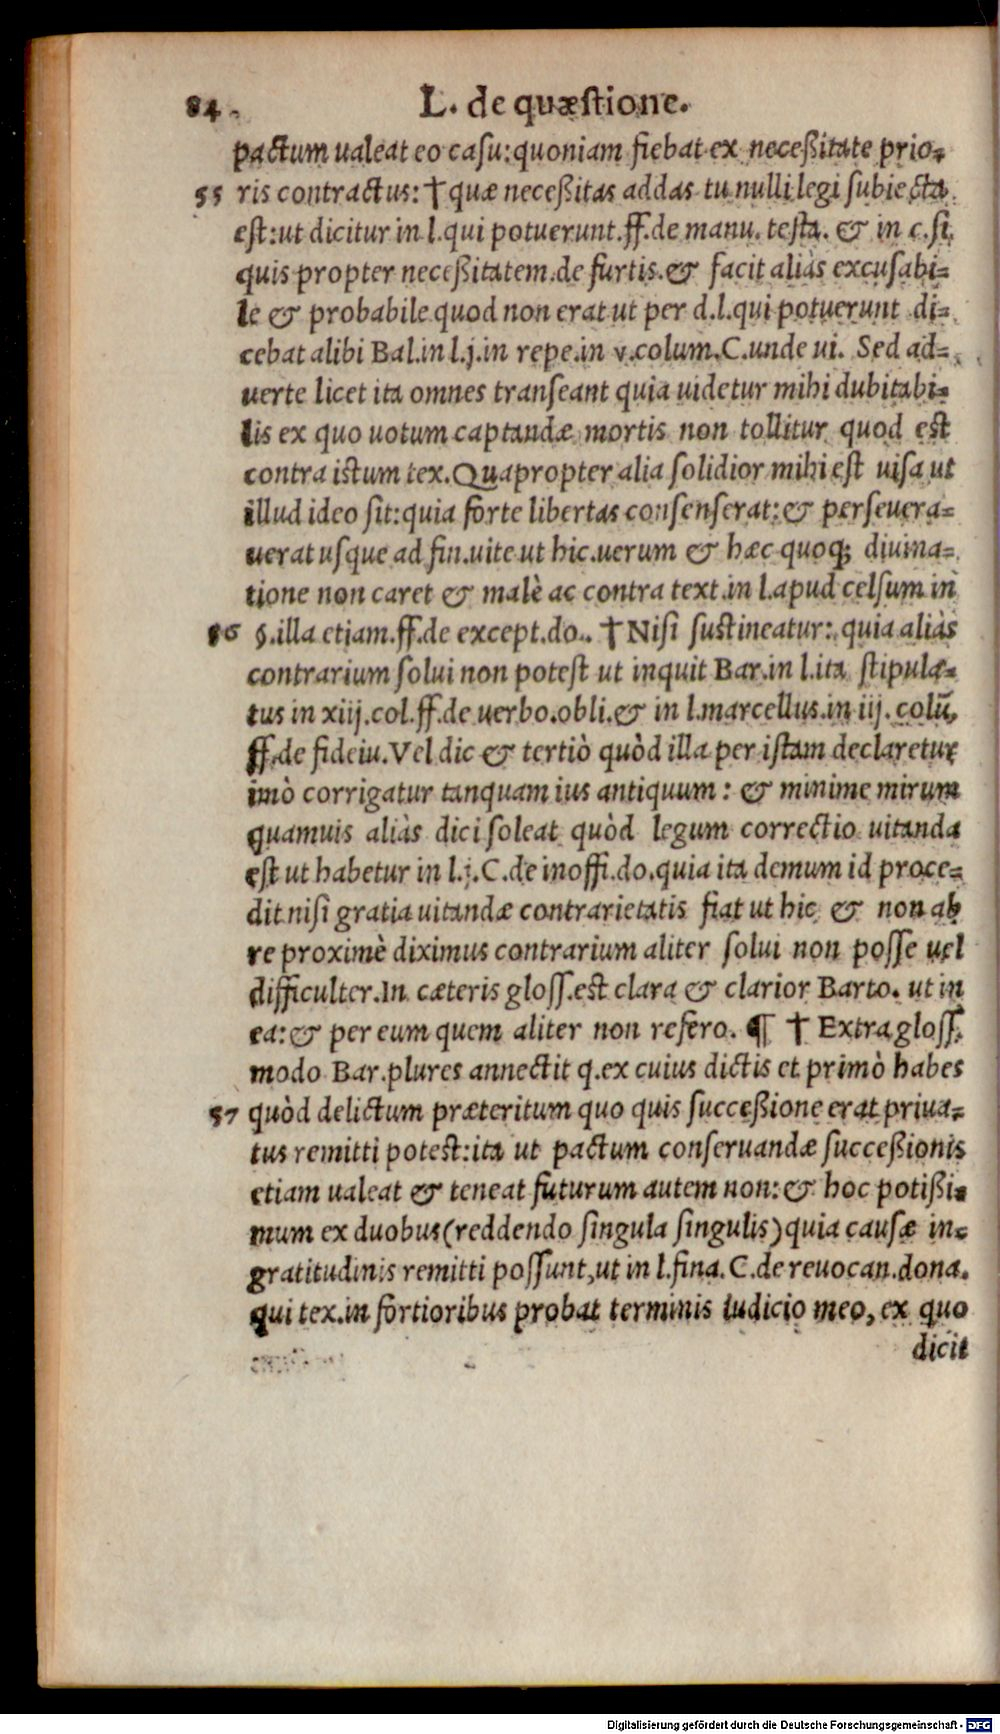 84. L. de quæſtione.
pactum ualeat eo caſu: quoniam fiebat ex neceßitate prio-
55 ris contractus: † quæ neceßitas addas tu nulli legi ſubiecta
eſt: ut dicitur in l. qui potuerunt. ff. de manu. teſta. & in c. ſi
quis propter neceßitatem. de furtis. & facit aliàs excuſabi-
le & probabile quod non erat ut per d. l. qui potuerunt di-
cebat alibi Bal. in l. j. in repe. in v. colum. C. unde ui. Sed ad-
uerte licet ita omnes tranſeant quia uidetur mihi dubitabi-
lis ex quo uotum captandæ mortis non tollitur quod eſt
contra iſtum tex. Quapropter alia ſolidior mihi eſt uiſa ut
illud ideo ſit: quia forte libertas conſenſerat: & perſeuera-
uerat uſque ad fin. uite ut hic. uerum & hæc quoq; diuina-
tione non caret & malè ac contra text. in l. apud celſum in
56 §. illa etiam. ff. de except. do. † Niſi ſuſtineatur: quia aliàs
contrarium ſolui non poteſt ut inquit Bar. in l. ita ſtipula-
tus in xiij. col. ff. de uerbo. obli. & in l. marcellus. in iij. colū.
ff. de fideiu. Vel dic & tertiò quòd illa per iſtam declaretur
imò corrigatur tanquam ius antiquum: & minime mirum
quamuis aliàs dici ſoleat quòd legum correctio uitanda
eſt ut habetur in l. j. C. de inoffi. do. quia ita demum id proce-
dit niſi gratia uitandæ contrarietatis fiat ut hic & non ab
re proximè diximus contrarium aliter ſolui non poſſe uel
difficulter. In cæteris gloſſ. eſt clara & clarior Barto. ut in
ea: & per eum quem aliter non refero. ¶ † Extra gloſſ.
modo Bar. plures annectit q. ex cuius dictis et primò habes
57 quòd delictum præteritum quo quis ſucceßione erat priua-
tus remitti poteſt: ita ut pactum conſeruandæ ſucceßionis
etiam ualeat & teneat futurum autem non: & hoc potißi-
mum ex duobus (reddendo ſingula ſingulis) quia cauſæ in-
gratitudinis remitti poſſunt, ut in l. fina. C. de reuocan. dona.
qui tex. in fortioribus probat terminis iudicio meo, ex quo
dicit
Digitalisierung gefördert durch die Deutsche Forschungsgemeinschaft - DFG